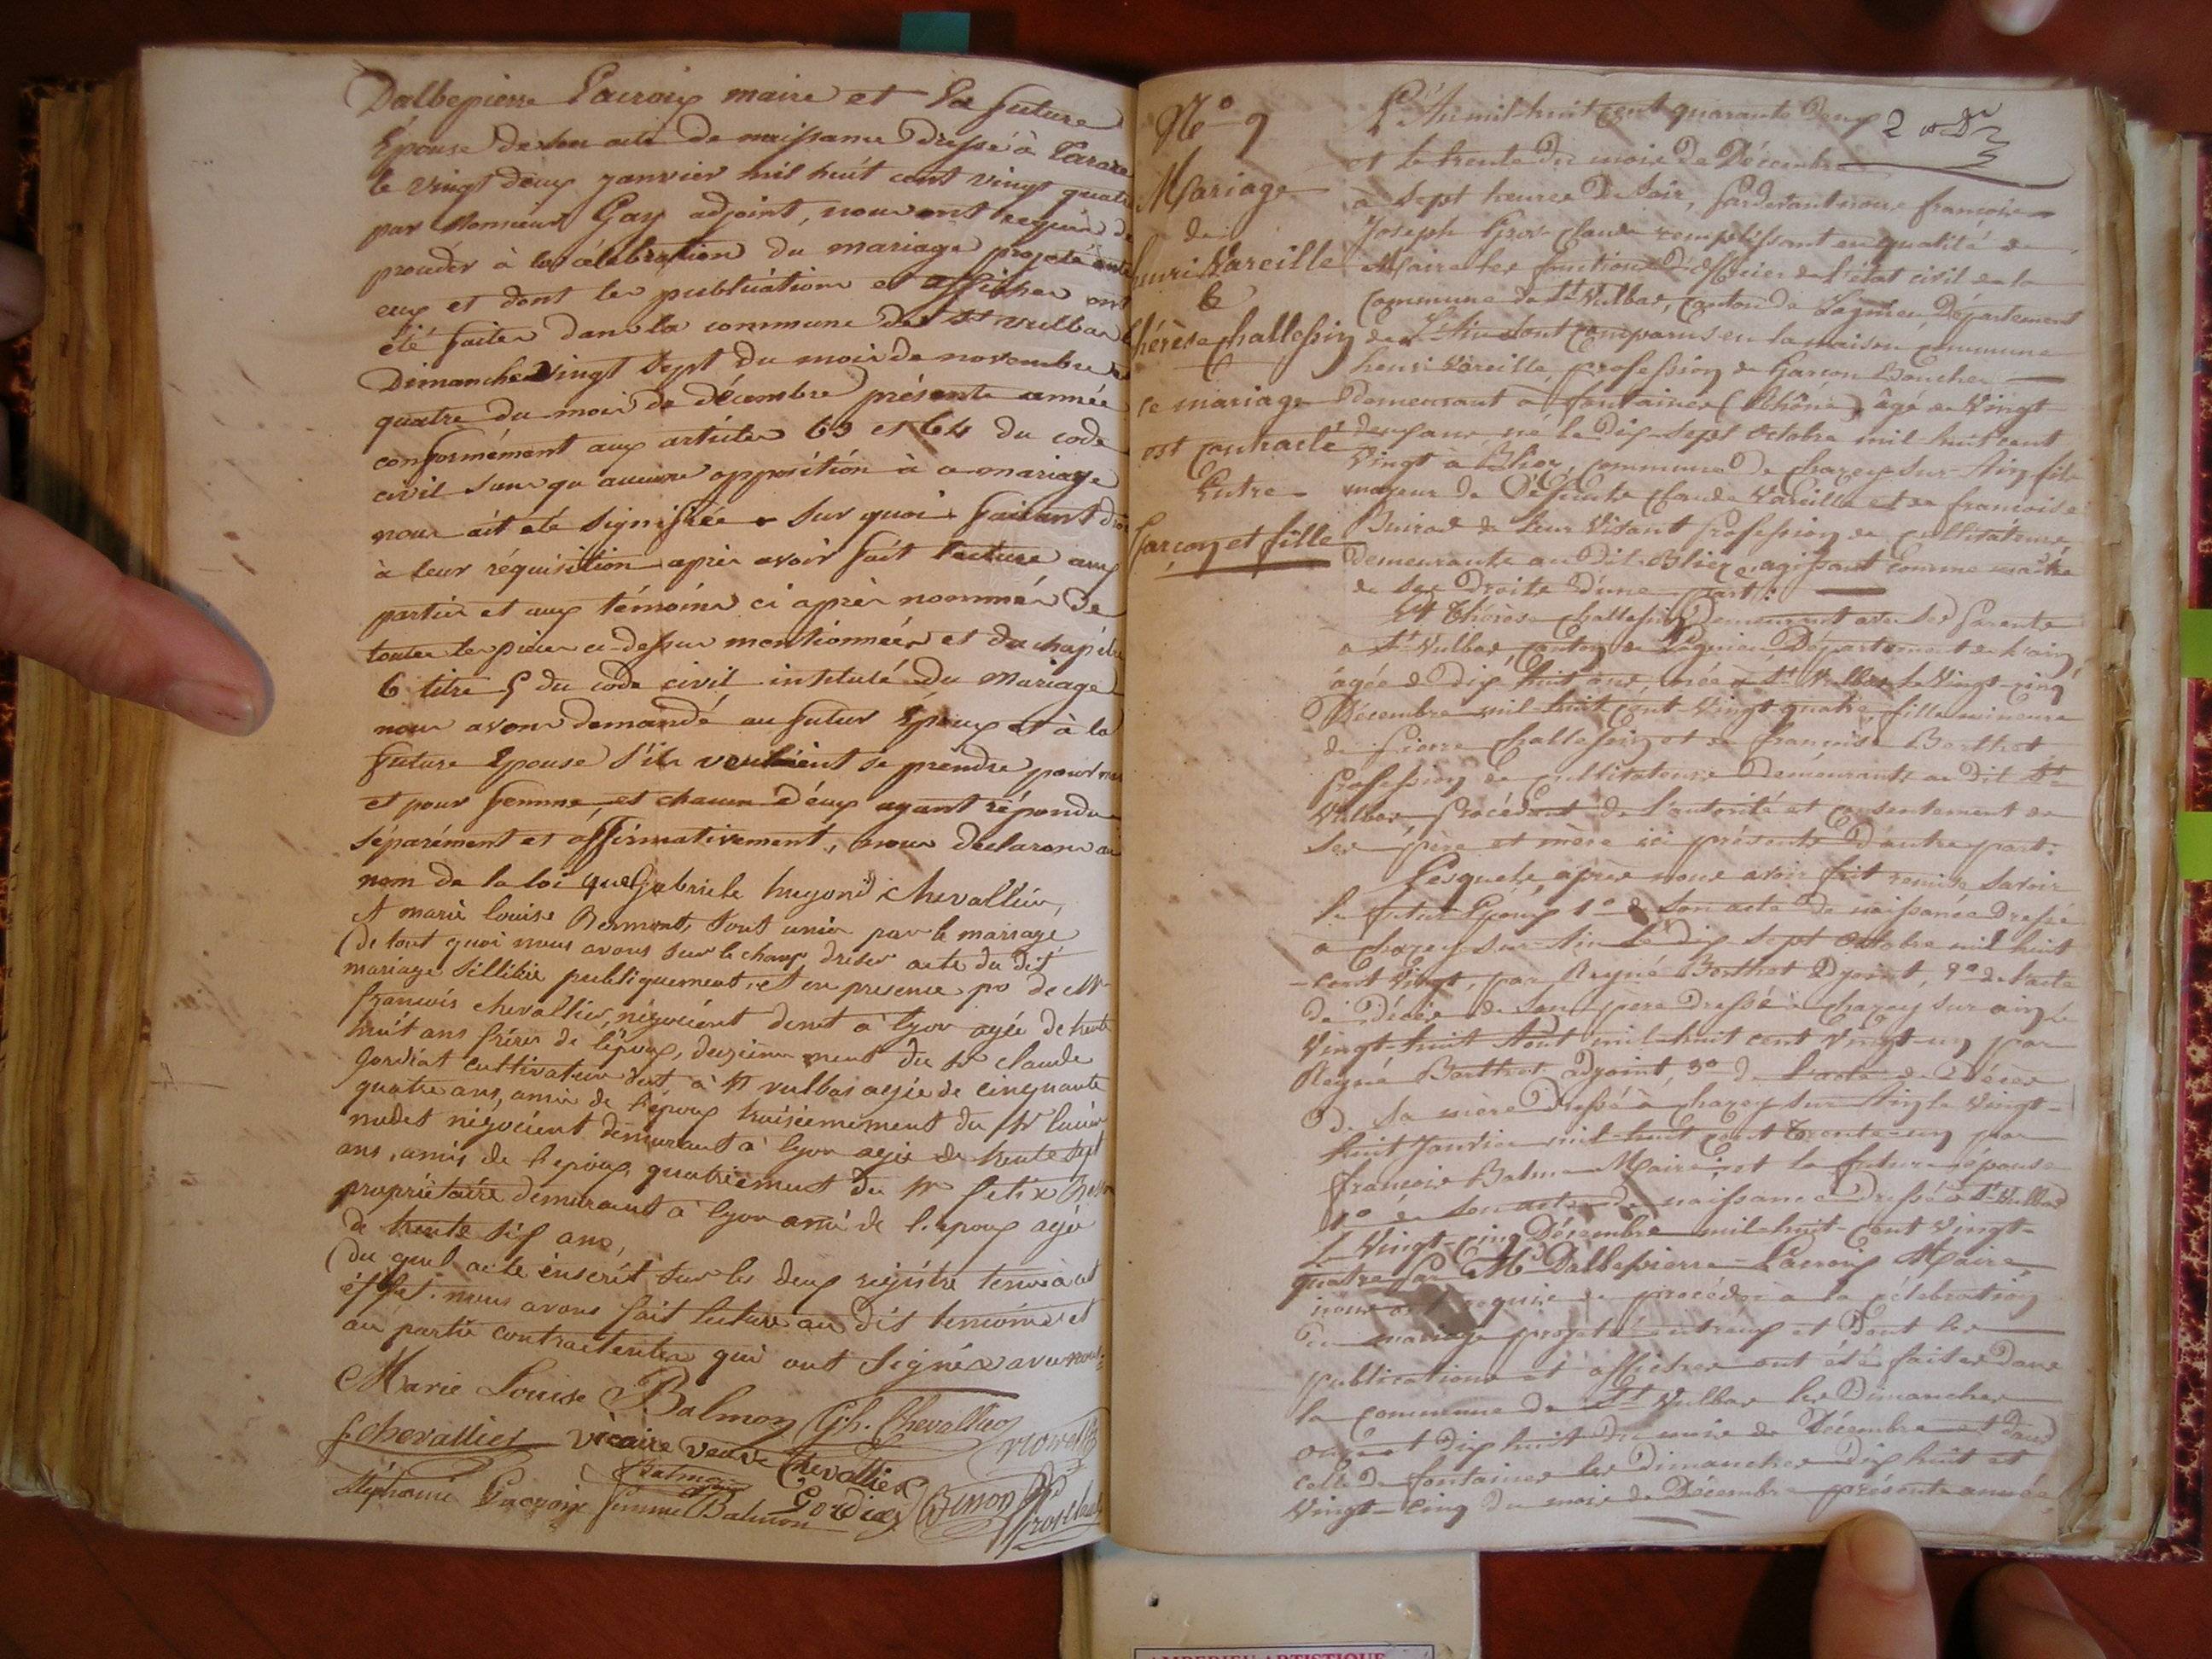 Dalbepierre Lacroix maire et la future
Epouse de son acte de naissance dressé à Tarare
le vingt deux janvier mil huit cent vingt quatre
par Monsieur Gay adjoint, nous ont requis de
procéder à la célébration du mariage projeté entre
eux et dont les publications et affiches ont
été faites dans la commune de St vulbas le
Dimanche vingt sept du mois de novembre et
quatre du mois de décembre présente année
conformément aux articles 63 et 64 du code
civil sans qu'aucune opposition à ce mariage
nous ait été signifiée. Sur quoi faisant droit
à leur réquisition après avoir fait lecture aux
parties et aux témoins ci après nommés de
toutes les pièces ci-dessus mentionnées et du chapitre
6 titre 5 du code civil intitulé du Mariage
nous avons demandé au futur Epoux et à la
future Epouse s'ils veulaient se prendre pour mari
et pour femme et chacun d'eux ayant répondu
séparément et affirmativement, nous declarons au
nom de la loi que Gabriele hugond chevallier,
et marie louise Bermont, sont unis par le mariage
De tout quoi nous avons sur le champ dresser acte du dit
mariage publiquement, et en presence po de Mr
francois chevallier, négociént demt à lyon agée de trente
huit ans frères de l'époux, deuxiemement du Sr claude
Gordiat cultivateur demt à St vulbas agée de cinquante
quatre ans, amis de l'époux troisiemement du Sr
négociént demurant à lyon agée de trente sept
ans, amis de l'epoux, quatriement du Sr felix
propriétaire demurant à lyon ami de l'epoux agé
de trente six ans,
Du quel acte inscrit sur les deux registre tenus à cet
effet. nous avons fait lecture au dits temoins et
au partie contractentes qui ont signés avec nous.
Marie Louise Balmon Gh. Chevallier
f chevallier vicaire veuve chevallier
Balmon
Stéphanie Lacroix femme Balmon Gordiat Besson Grosclaude
No 9
Mariage
de
henri Vareille
&
thérèse challessin
ce mariage
est contracté
Entre
Garçon et fille
L'An mil-huit cent quarante deux 2
et le trente du mois de Décembre
à sept heures du soir, pardevant nous francois
Joseph Gros-claude remplissant en qualité de
Maire les fonctions d'officier de l'état civil de la
commune de St Vulbas, canton de Lagnieu Département
de l'Ain sont comparus en la maison commune
henri Vareille, profession de Garçon Boucher
Demeurant à fontaines (Rhône) âgé de Vingt
deux ans, né le Dix-sept octobre mil huit cent
Vingt à Blies, commune de chazey-sur-Ain fils
majeur de Défunts claude Vareille et de francoise
Buirod de leur Vivant profession de cultivateurs
Demeurants au Dit Blies agissant comme maître
de ses droits d'une part:
Et thérèse challessin Demeurant avec ses parents
à St Vulbas canton de Lagnieu, Département de l'ain,
âgée de Dix huit ans, née à St Vulbas le Vingt-cinq
Décembre mil-huit cent Vingt-quatre, fille mineure
de pierre challessin et de francoise Berthet
profession de cultivateurs Demeurants au Dit St
Vulbas, procédant de l'autorité et consentement de
ses père et mère ici présents d'autre part.
Lesquels, après nous avoir fait remise savoir
le futur Epoux 1o de son acte de naissance dressé
à chazey-sur-Ain le dix sept octobre mil huit
cent vingt, par Reyné Berthet adjoint, 2o de l'acte
de décès de son père dressé à chazey sur ain le
Vingt-huit Aout mil-huit cent Vingt-un par
Reyné Berthet, adjoint, 3o de l'acte de Décès
De sa mère Dressé à chazey sur Ain le Vingt-
huit Janvier mil-huit cent trente-un par
francois Balme Maire; et la future épouse
1o de son acte de naissance dressé à St Vulbas
le Vingt-cinq Décembre mil-huit-cent Vingt-
quatre par Mr Dalbepierre-Lacroix Maire,
nous ont requis de procéder à la célébration
du mariage projeté entr'eux et Dont les
publications et affiches ont été faites dans
la commune de St Vulbas les Dimanches
onze et dix huit du mois de Décembre et dans
celle de fontaines les Dimanches dix huit et
Vingt-cinq du mois de Décembre présente année
AMBERIEU ARTISTIQUE